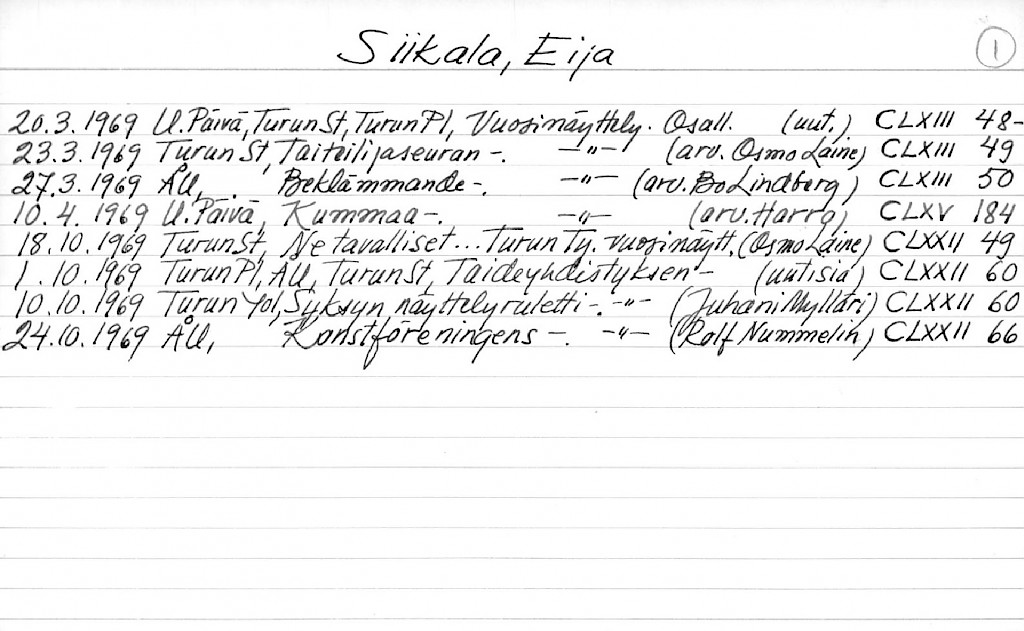 Siikala, Eija
1
20.3.1969 U.Päivä, Turun St, Turun Pl, Vuosinäyttely. Osall. (uut.) CLXIII 48-
23.3.1969 Turun St, Taiteilijaseuran -. -"- (arv. Osmo Laine) CLXIII 49
27.3.1969 ÅU, Beklämmande -. -"- (arv. Bo Lindberg) CLXIII 50
10.4.1969 U.Päivä, Kummaa -. -"- (arv. Harro) CLXV 184
18.10.1969 Turun St, Ne tavalliset... Turun Ty. vuosinäytt. (Osmo Laine) CLXXII 49
1.10.1969 Turun Pl, ÅU, Turun St, Taideyhdistyksen - (uutisia) CLXXII 60
10.10.1969 Turun Yol, Syksyn näyttelyruletti -. -"- (Juhani Mylläri) CLXXII 60
24.10.1969 ÅU, Konstföreningens -. -"- (Rolf Nummelin) CLXXII 66